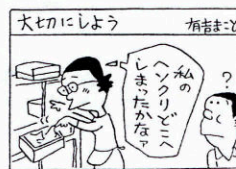 大切にしよう
有吉まこと
私の
ヘソクリどこへ
しまったかなァ
?